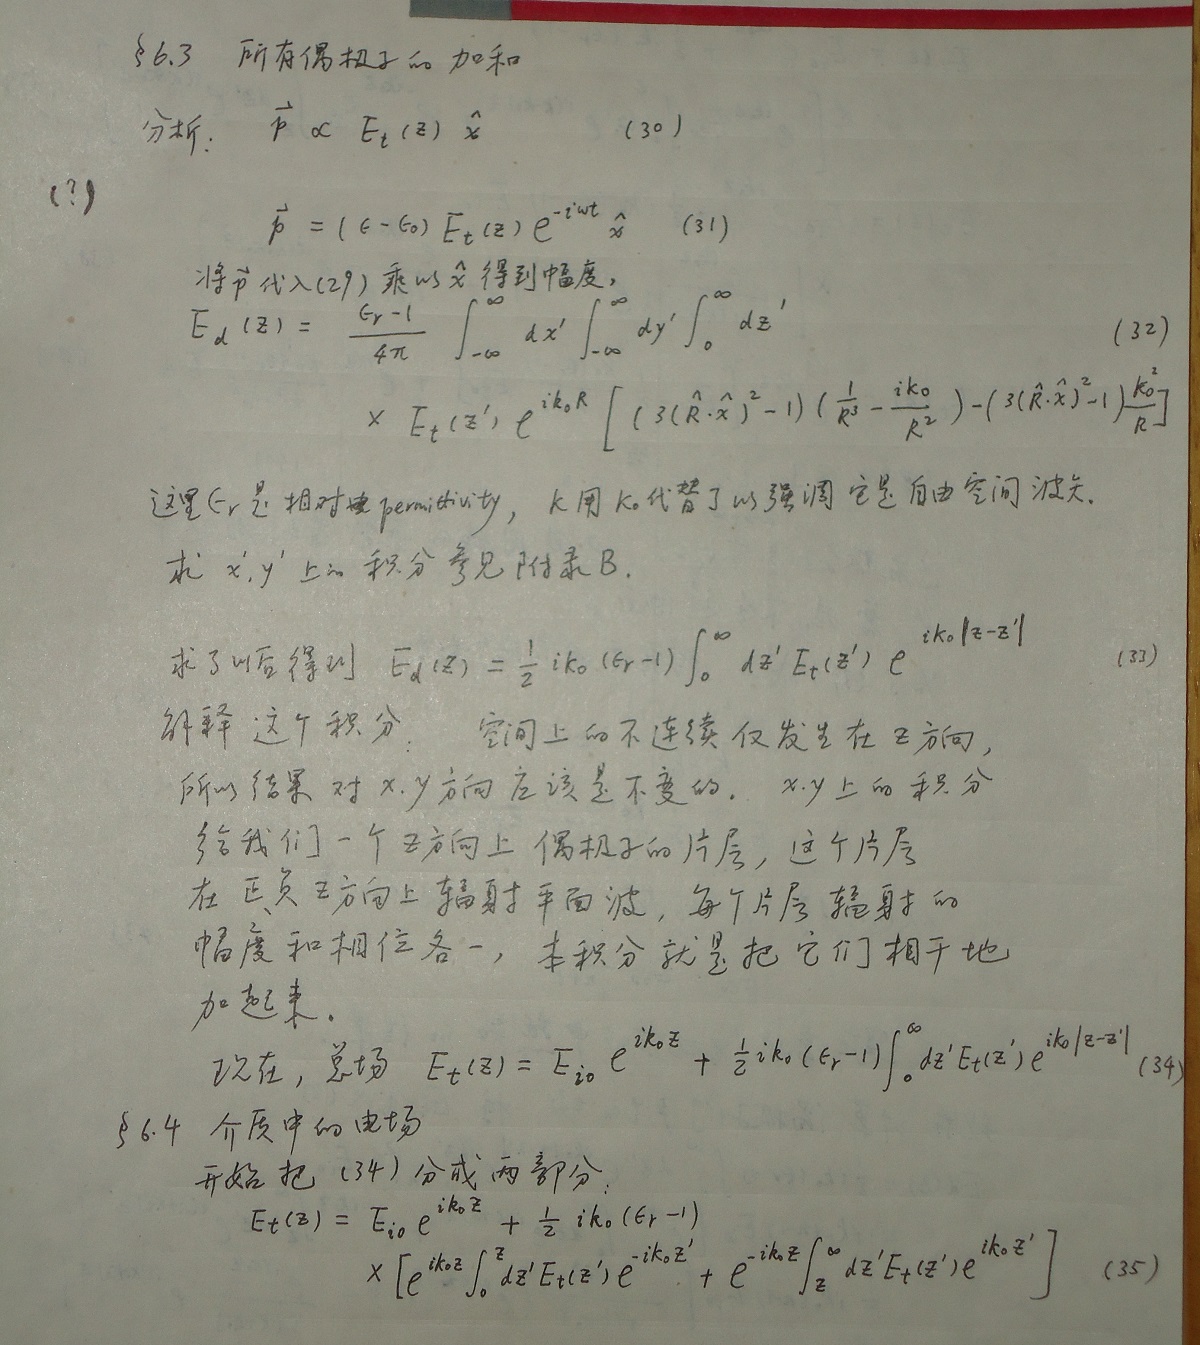 §6.3 所有偶极子的加和
分析: p⃗ ∝ E_t(z) x̂ (30)
(?)
p⃗ = (ϵ-ϵ₀) E_t(z) e^{-iωt} x̂ (31)
将p⃗代入(29)乘以x̂得到幅度,
E_d(z) = \frac{ϵ_r-1}{4π} ∫_{-∞}^{∞} dx' ∫_{-∞}^{∞} dy' ∫_0^∞ dz' (32)
× E_t(z') e^{ik₀R} [(3(R̂·x̂)²-1)(\frac{1}{R³} - \frac{ik₀}{R²})-(3(R̂·x̂)²-1)\frac{k₀²}{R}]
这里ϵ_r是相对permittivity, k用k₀代替了以强调它是自由空间波矢.
求 x',y' 上的积分参见附录B.
求了以后得到 E_d(z) = ½ ik₀(ϵ_r-1) ∫_0^∞ dz' E_t(z') e^{ik₀|z-z'|} (33)
解释这个积分: 空间上的不连续仅发生在z方向,
所以结果对x.y方向应该是不变的. x.y上的积分
给我们一个z方向上偶极子的片层, 这个片层
在正、负z方向上辐射平面波, 每个片层辐射的
幅度和相位各一, 本积分就是把它们相干地
加起来.
现在, 总场 E_t(z) = E_{i0} e^{ik₀z} + ½ ik₀(ϵ_r-1) ∫_0^∞ dz' E_t(z') e^{ik₀|z-z'|} (34)
§6.4 介质中的电场
开始把(34)分成两部分:
E_t(z) = E_{i0} e^{ik₀z} + ½ ik₀(ϵ_r-1)
× [e^{ik₀z} ∫_0^z dz' E_t(z') e^{-ik₀z'} + e^{-ik₀z} ∫_z^∞ dz' E_t(z') e^{ik₀z'}] (35)